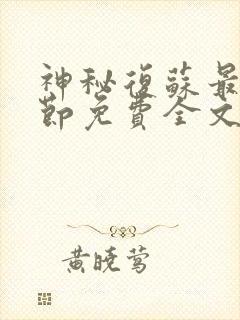 神秘復蘇最
節免費全文
黃曉鶯